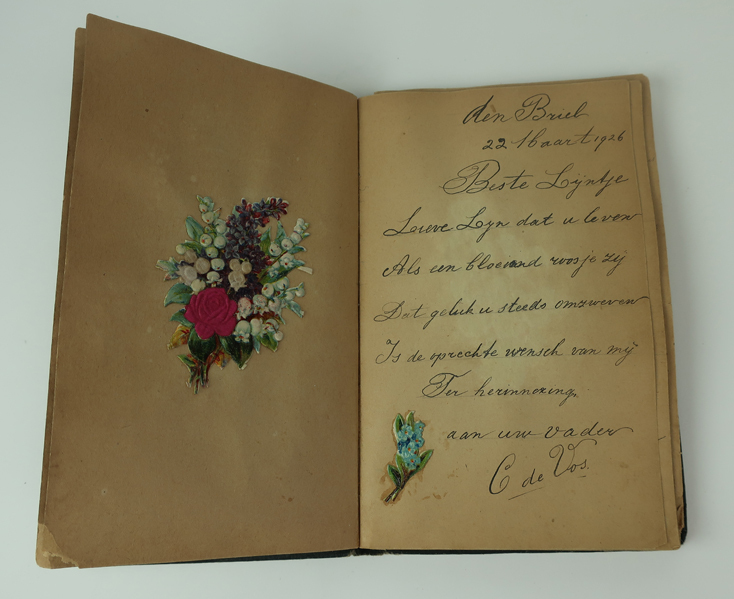 den Briel
22 Maart 1926
Beste Lijntje
Lieve Lijn dat u leven
Als een bloeiend roosje zij
Dat geluk u steeds omzweven
Is de oprechte wensch van mij
Ter herinnering
aan uw vader
C de Vos.